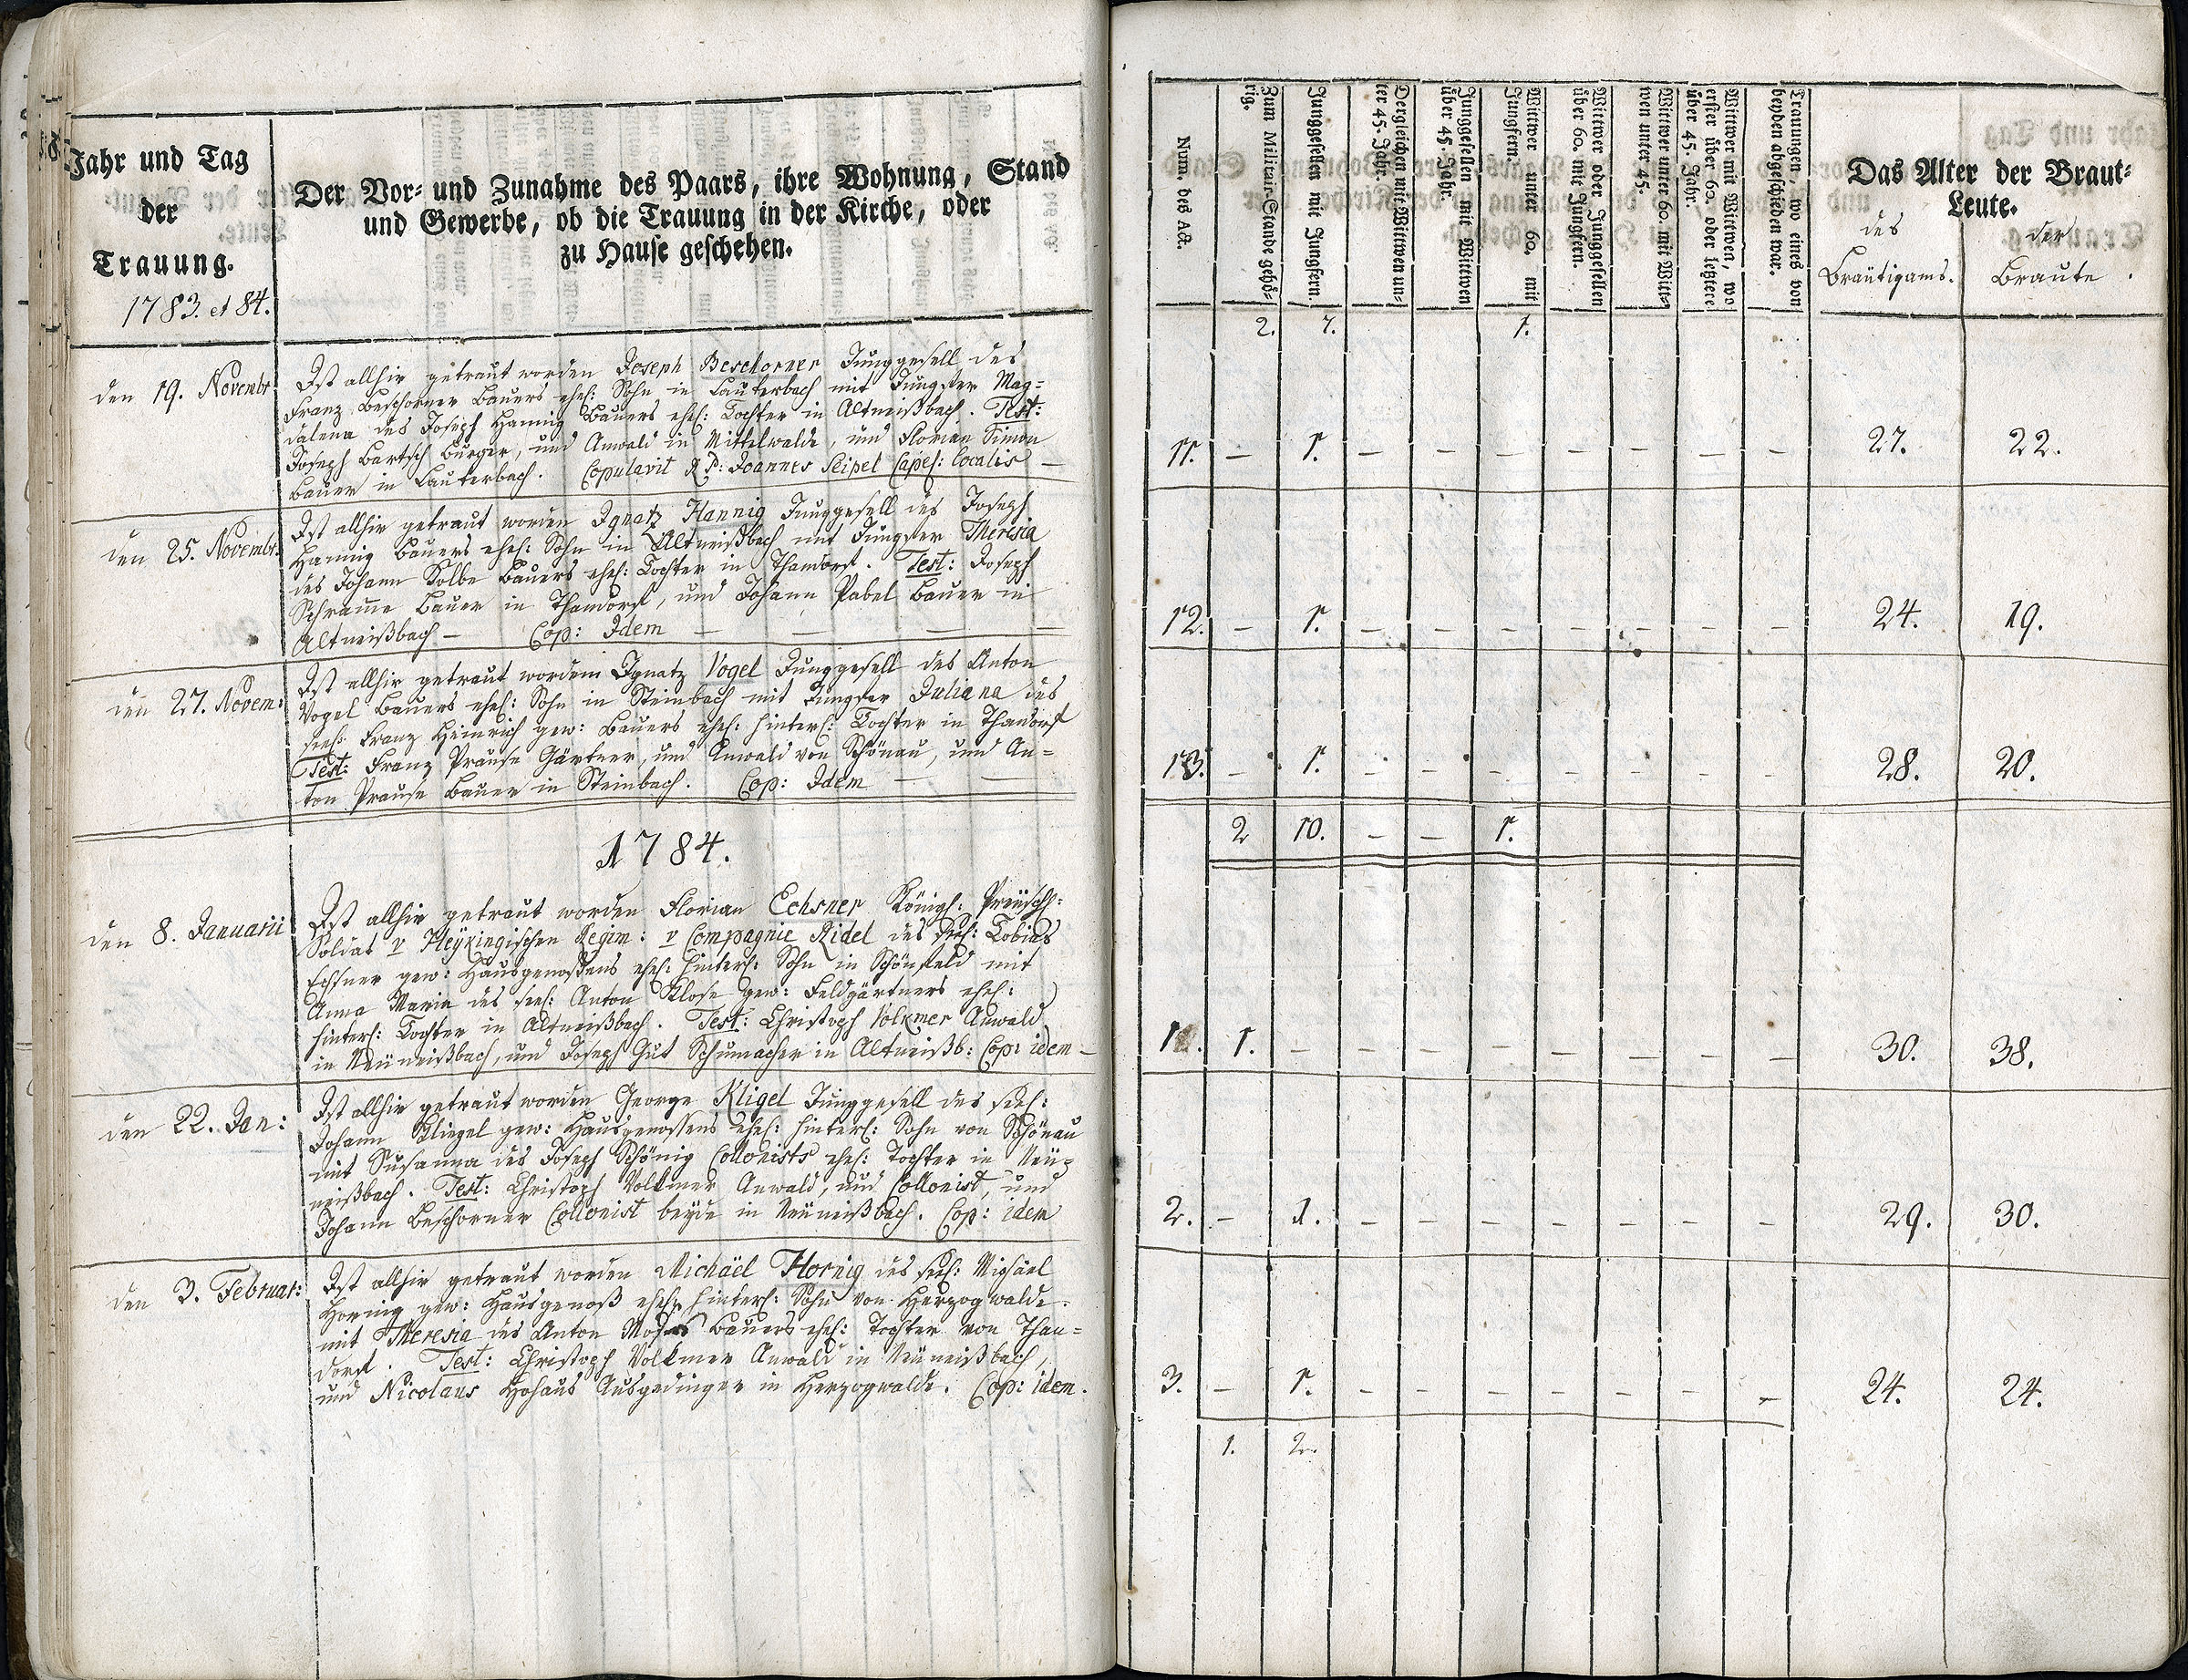 Jahr und Tag
der
Trauung.
1783. et 84.
Der Vor- und Zunahme des Paars, ihre Wohnung, Stand
und Gewerbe, ob die Trauung in der Kirche, oder
zu Hause geschehen.
den 19. Novembr
Ist allhir getraut worden Joseph Beschorner Junggesell des
Franz Beschorner Bauers ehel: Sohn in Lauterbach mit Jungfer Mag-
dalena des Joseph Hannig Bauers ehel: Tochter in Altneißbach. Test:
Joseph Bartsch Burger, und Anwald in Mittelwalde, und Florian Simon
Bauer in Lauterbach. Copulavit R. P: Joannes Seipel Capel: Localis —
den 25. Novembr.
Ist allhir getraut worden Ignatz Hannig Junggesell des Joseph
Hannig Bauers ehel: Sohn in Altneißbach mit Jungfer Theresia
des Johann Kolbe Bauers ehel: Tochter in Thandorf. Test: Joseph
Schrame Bauer in Thandorf, und Johann Pabel Bauer in
Altneißbach — Cop: Idem — — — —
den 27. Novem:
Ist allhir getraut worden Ignatz Vogel Junggesell des Anton
Vogel Bauers ehel: Sohn in Steinbach mit Jungfer Juliana des
seel: Franz Heinrich gew: Bauers ehel: hinterl: Tochter in Thandorf
Test: Franz Prause Gärtner, und Anwald von Schönau, und An-
ton Prause Bauer in Steinbach. Cop: Idem — —
1784.
den 8. Januarii
Ist allhir getraut worden Florian Echsner Königl: Preüsch:
Soldat v Heÿkingischen Regim: v Compagnie Ridel des seel: Tobias
Echsner gew: Hausgenoßens ehel: hinterl: Sohn in Schönfeld mit
Anna Maria des seel: Anton Klose gew: Feldgärtners ehel:
hinterl: Tochter in Altneißbach. Test: Christoph Volkmer Anwald
in Neüneißbach, und Joseph Gut Schumacher in Altneißb: Cop: idem —
den 22. Jan:
Ist allhir getraut worden George Kligel Junggesell des seel:
Johann Kliegel gew: Hausgenossens ehel: hinterl: Sohn von Schönau
mit Susanna des Joseph Schönig Collonists ehel: Tochter in Neü-
neißbach. Test: Christoph Volkmer Anwald, und Collonist, und
Johann Beschorner Collonist beyde in Neüneißbach. Cop: idem
den 3. Februar:
Ist allhir getraut worden Michäel Hornig des seel: Michäel
Hornig gew: Hausgenoß ehel: hinterl: Sohn von Herzogwalde.
mit Theresia des Anton Bauers ehel: Tochter von Than-
dorf. Test: Christoph Volkmer Anwald in Neüneißbach,
und Nicolaus Hohaus Ausgedinger in Herzogwalde. Cop: idem.
Num. des Act.
Zum Militair-Stande gehö-
rig.
Junggesellen mit Jungfern.
Dergleichen mit Wittwen un-
ter 45. Jahr.
Junggesellen mit Wittwen
über 45. Jahr.
Wittwer unter 60. mit
Jungfern.
Wittwer oder Junggesellen
über 60. mit Jungfern.
Wittwer unter 60. mit Witt-
wen unter 45.
Wittwer mit Wittwen, wo
erster über 60. oder letztere
über 45. Jahr.
Trauungen, wo eines von
beyden abgeschieden war.
Das Alter der Braut-
Leute.
des
Braütigams.
der
Braute.
2. 7. 1.
11. — 1. — — — — — — — 27. 22.
12. — 1. — — — — — — — 24. 19.
13. — 1. — — — — — — — 28. 20.
2 10. — — 1.
1. 1. — — — — — — — — 30. 38.
2. — 1. — — — — — — — 29. 30.
3. — 1. — — — — — — — 24. 24.
1. 2.